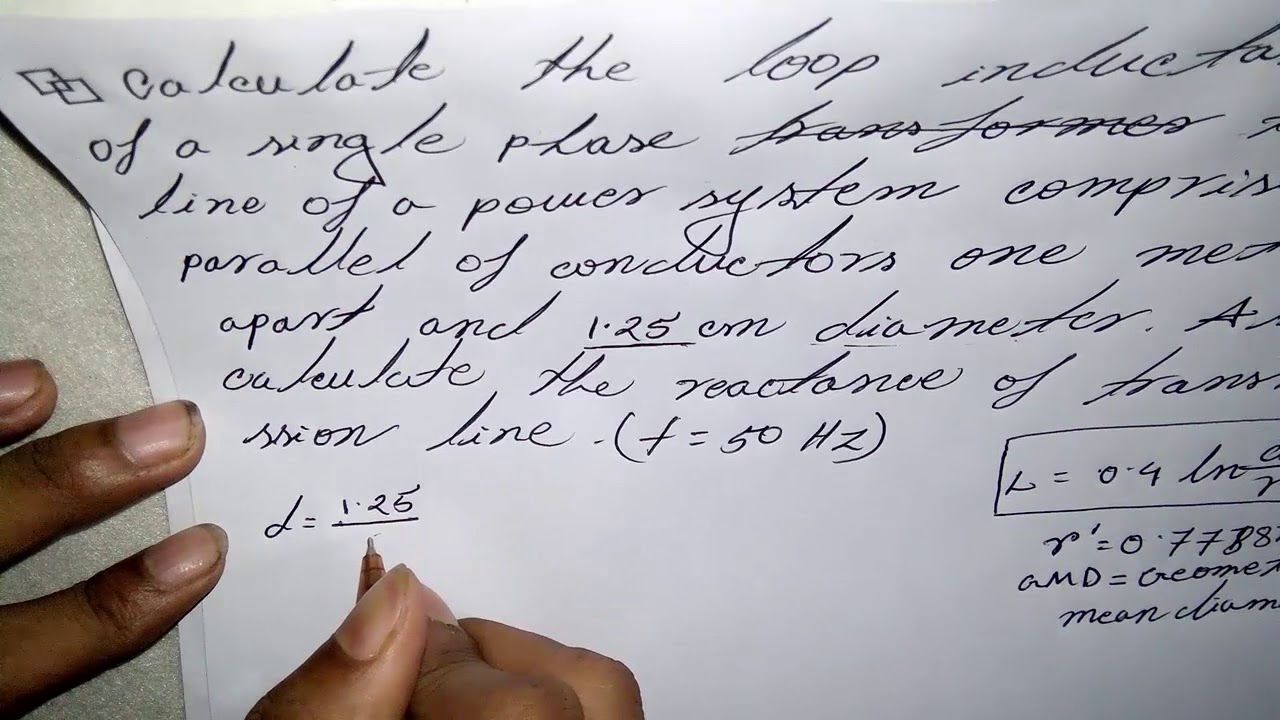 Calculate the loop inducta
of a single phase transformer
line of a power system compris
parallel of conductors one met
apart and 1.25 cm diameter. A
calculate the reactance of trans
ssion line. (f = 50 Hz)
L = 0.4 ln
d = 1.25
r' = 0.7788
GMD = Geomet
mean diam